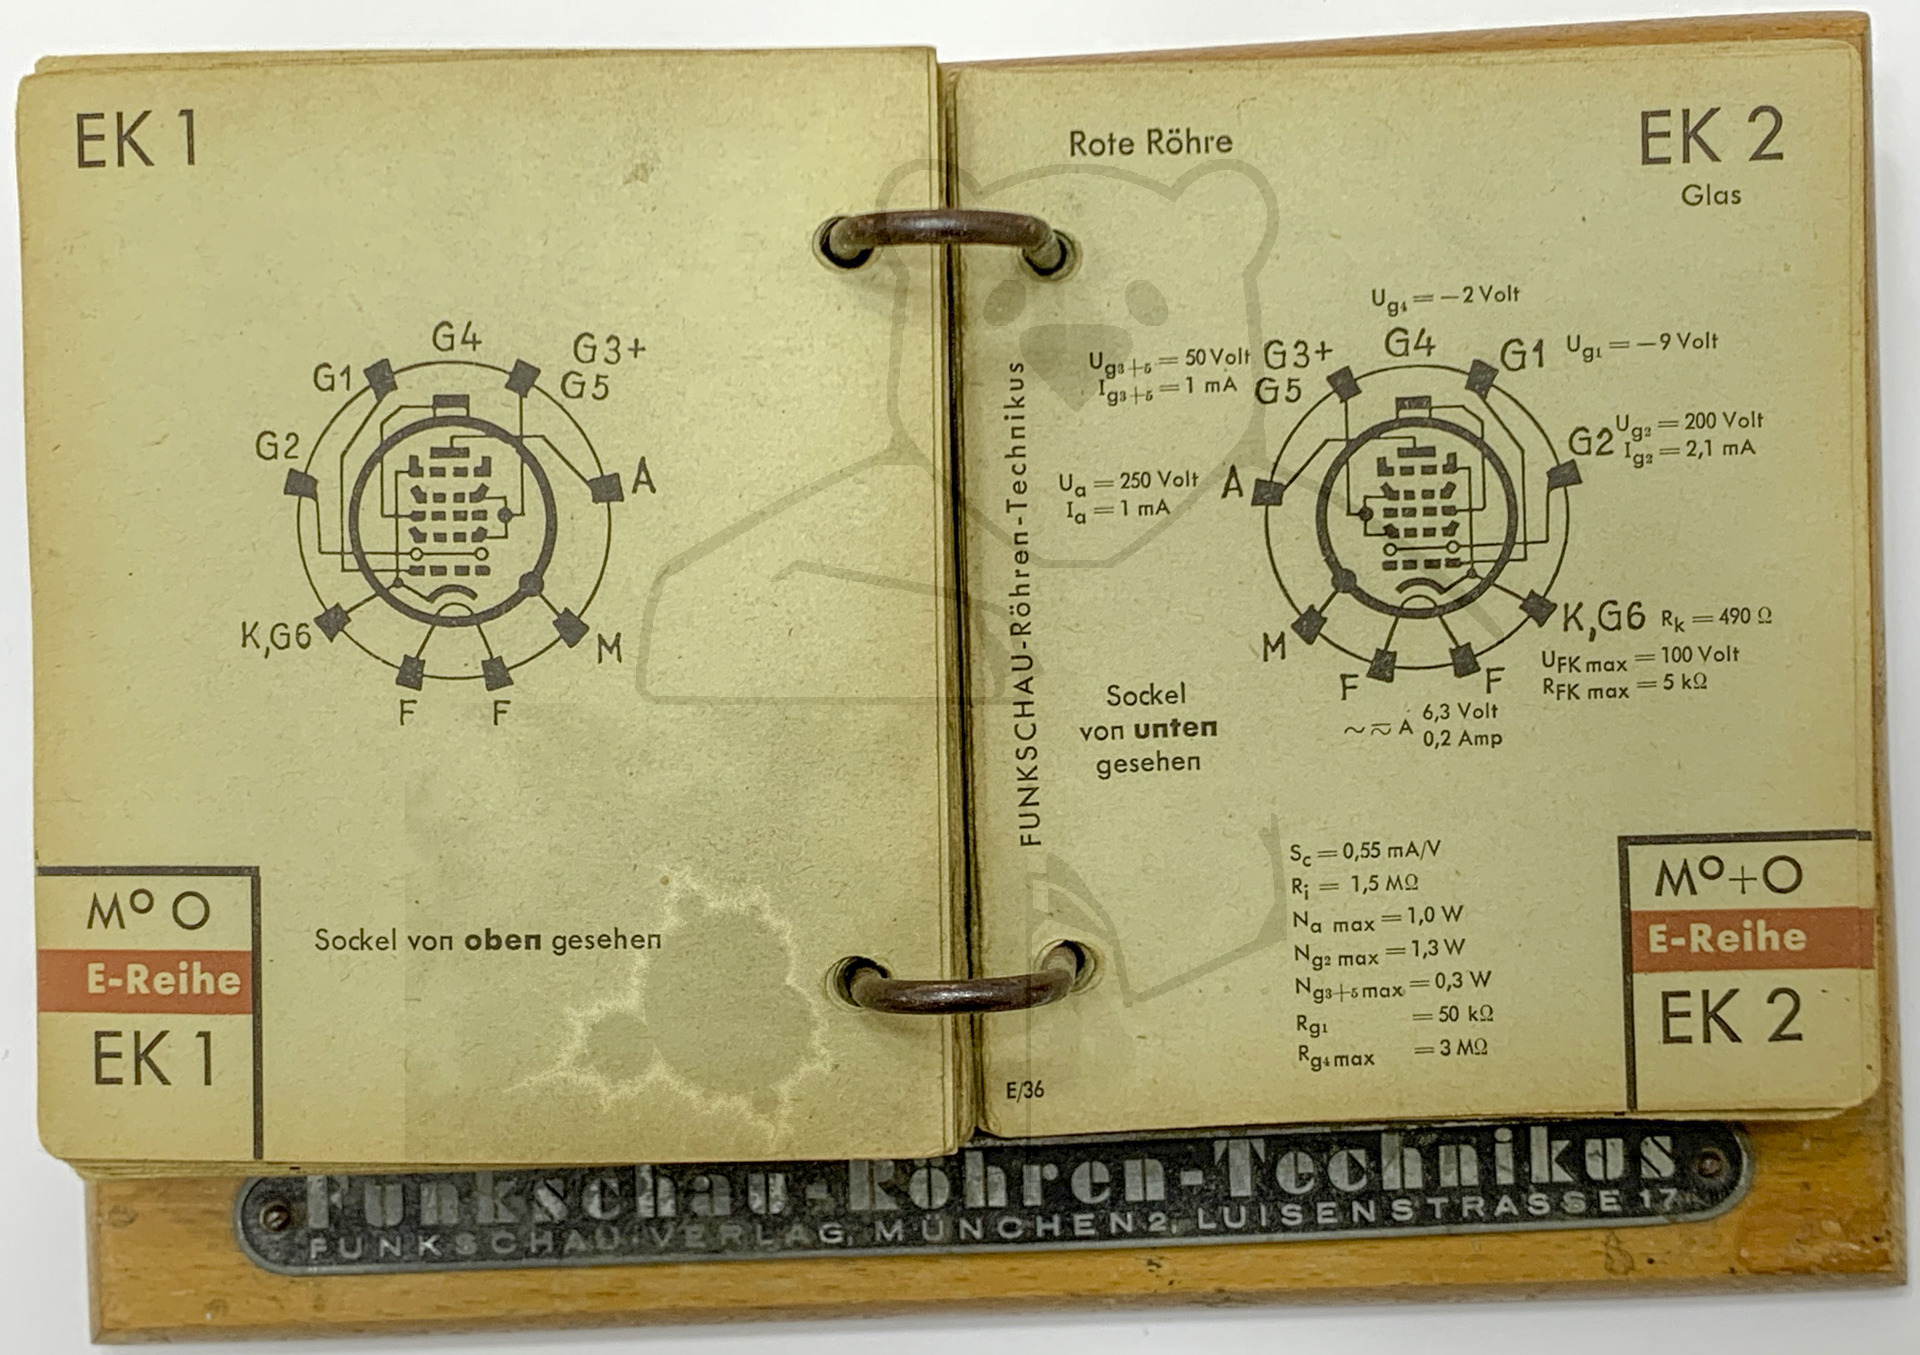 EK 1
G4
G3+
G1
G5
G2
A
K,G6
M
F
F
M° O
E-Reihe
EK 1
Sockel von oben gesehen
Rote Röhre
EK 2
Glas
Ug4 = −2 Volt
Ug3+5 = 50 Volt
Ig3+5 = 1 mA
G3+
G5
G4
G1
Ug1 = −9 Volt
G2
Ug2 = 200 Volt
Ig2 = 2,1 mA
Ua = 250 Volt
Ia = 1 mA
A
K,G6
Rk = 490 Ω
M
UFK max = 100 Volt
RFK max = 5 kΩ
F
F
~ ≂ A
6,3 Volt
0,2 Amp
Sockel
von unten
gesehen
FUNKSCHAU-Röhren-Technikus
Sc = 0,55 mA/V
Ri = 1,5 MΩ
Na max = 1,0 W
Ng2 max = 1,3 W
Ng3+5 max = 0,3 W
Rg1 = 50 kΩ
Rg4 max = 3 MΩ
E/36
M°+O
E-Reihe
EK 2
Funkschau-Röhren-Technikus
FUNKSCHAU-VERLAG, MÜNCHEN 2, LUISENSTRASSE 17